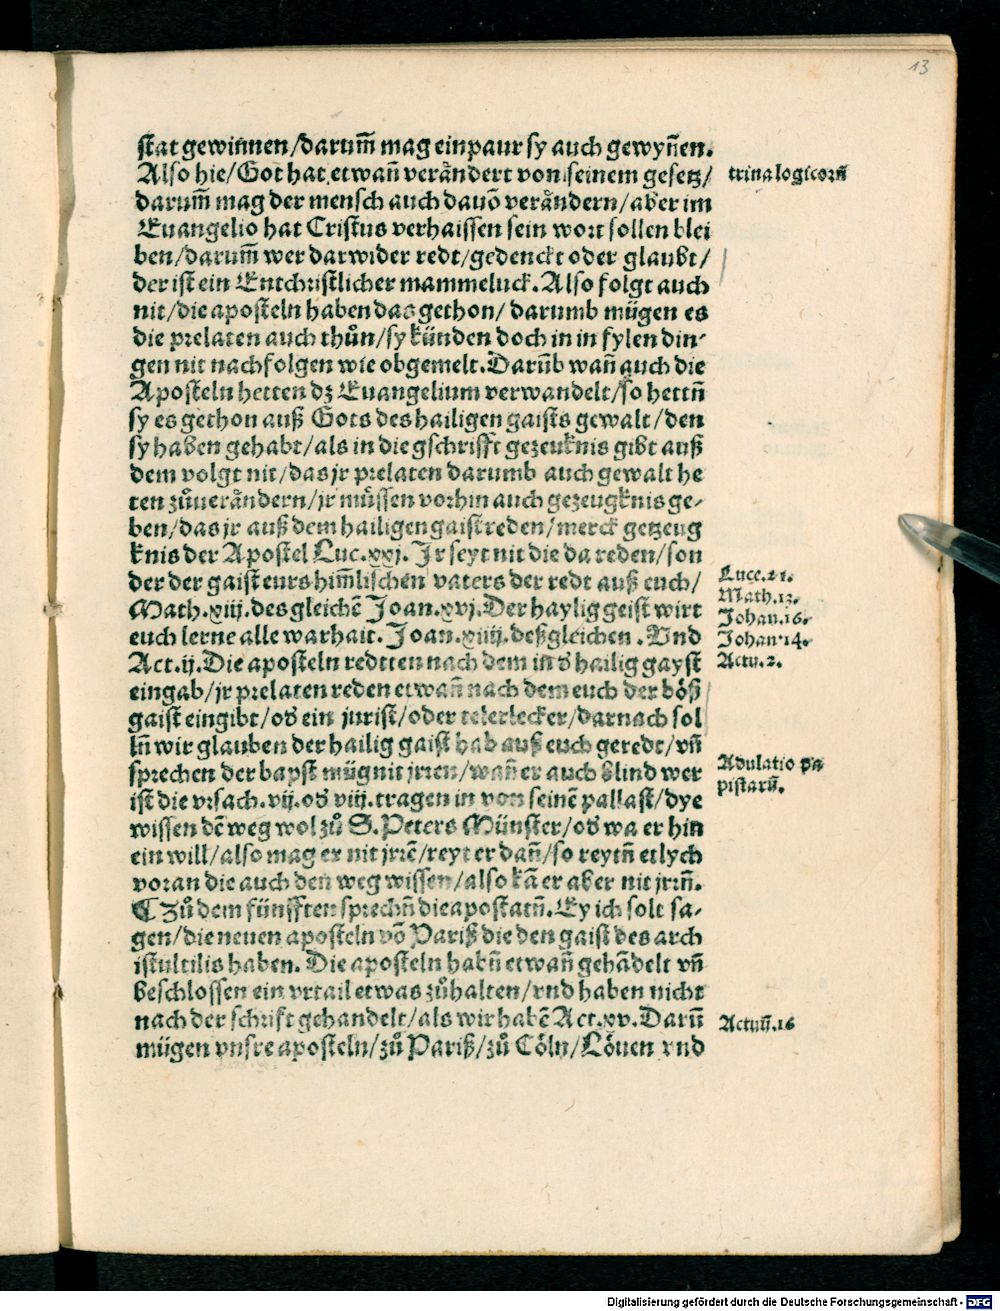 13
stat gewinnen/darum̃ mag ein paur sy auch gewyñen.
Also hie/Got hat etwañ verändert von seinem gesetz/
trina logicorũ
darum̃ mag der mensch auch dauõ verändern/aber im
Euangelio hat Cristus verhaissen sein wort sollen blei
ben/darum̃ wer darwider redt/gedenckt oder glaubt/
der ist ein Entchristlicher mammeluck. Also folgt auch
nit/die aposteln haben das gethon/ darumb mügen es
die prelaten auch thůn/sy künden doch in in fylen din-
gen nit nachfolgen wie obgemelt. Darũb wañ auch die
Aposteln hetten dz Euangelium verwandelt/so hettñ
sy es gethon auß Gots des hailigen gaists gewalt/den
sy haben gehabt/als in die gschrifft gezeuknis gibt auß
dem volgt nit/das jr prelaten darumb auch gewalt he
ten zůuerändern/jr müssen vorhin auch gezeugknis ge-
ben/das jr auß dem hailigen gaist reden/merck getzeug
knis der Apostel Luc.xxj. Jr seyt nit die da reden/son
der der gaist eurs him̃lischen vaters der redt auß euch/
Luce.21.
Math.xiij.des gleichẽ Joan.xvj.Der haylig geist wirt
Math.13.
Johan.16.
euch lerne alle warhait. Joan.xiiij.deßgleichen. Vnd
Johan.14.
Act.ij.Die aposteln redtten nach dem in ď hailig gayst
Actu.2.
eingab/jr prelaten reden etwañ nach dem euch der böß
gaist eingibt/oď ein jurist/oder telerlecker/darnach sol
lñ wir glauben der hailig gaist hab auß euch geredt/vñ
sprechen der bapst müg nit jrren/wañ er auch blind wer
Adulatio pa
pistarũ.
ist die vrsach.vij.oď viij.tragen in von seinẽ pallast/dye
wissen dẽ weg wol zů S.Peters Münster/oď wa er hin
ein will/also mag er nit jrrẽ/reyt er dañ/so reytñ etlych
voran die auch den weg wissen/also kã er aber nit jrrñ.
¶ Zů dem fünfften sprechñ die apostatñ. Ey ich solt sa-
gen/die neuen aposteln võ Pariß die den gaist des arch
istultilis haben. Die aposteln habñ etwañ gehãdelt vñ
beschlossen ein vrtail etwas zůhalten/vnd haben nicht
nach der schrift gehandelt/als wir habẽ Act.xv. Darũ
Actuũ.16
mügen vnsre aposteln/zů Pariß/zů Cöln/Löuen vnd
Digitalisierung gefördert durch die Deutsche Forschungsgemeinschaft - DFG